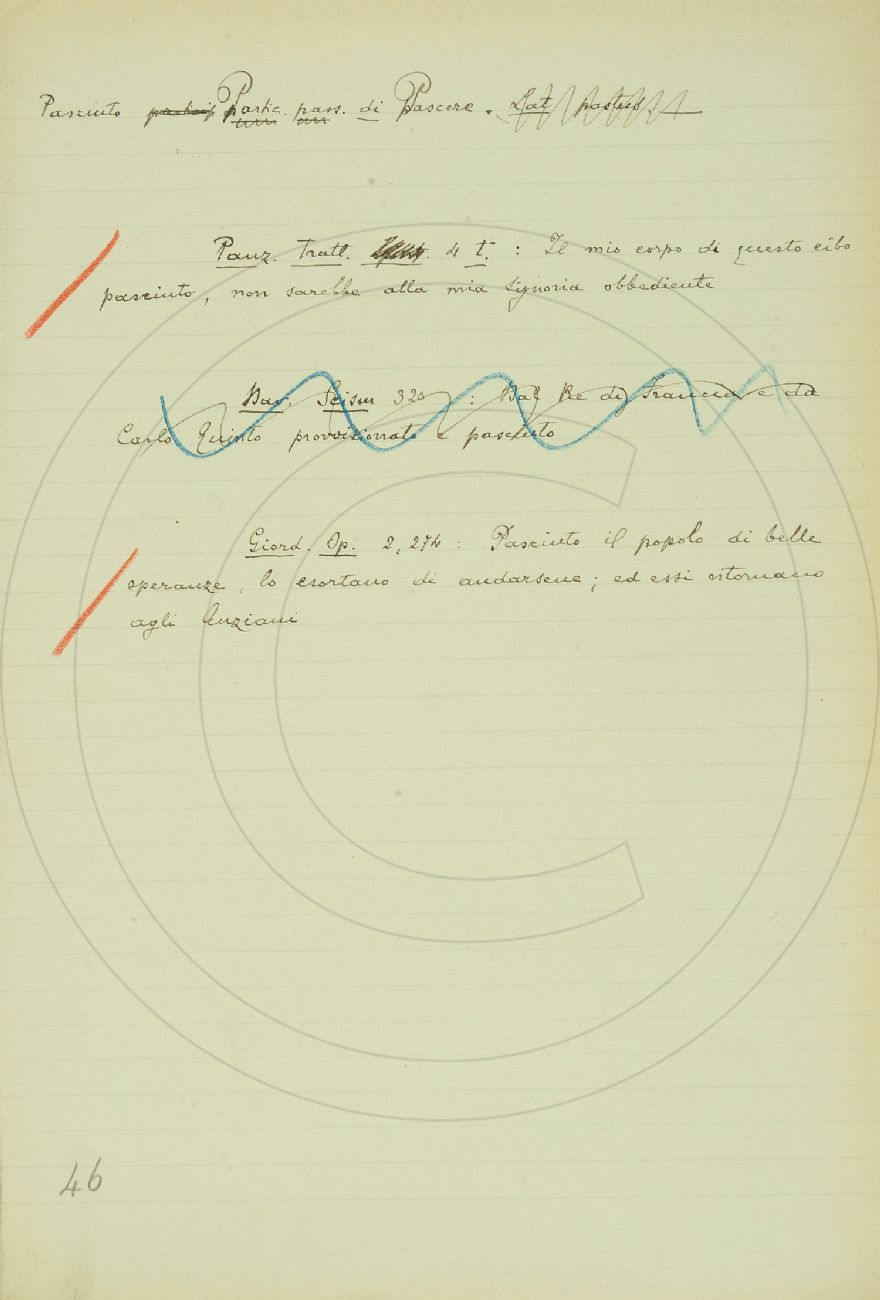 Pasciuto Partic. pass. di Pascere. Lat pastus
Panz. Tratt. 4 t. : Il mio corpo di questo cibo
pasciuto, non sarebbe alla mia signoria obbediente
Dav. Scism 320 : Dal Re di Francia e da
Carlo Quinto provvisionato e pasciuto
Giord. Op. 2, 274 : Pasciuto il popolo di belle
speranze, lo esortano di andarsene; ed essi ritornano
agli Anziani
46